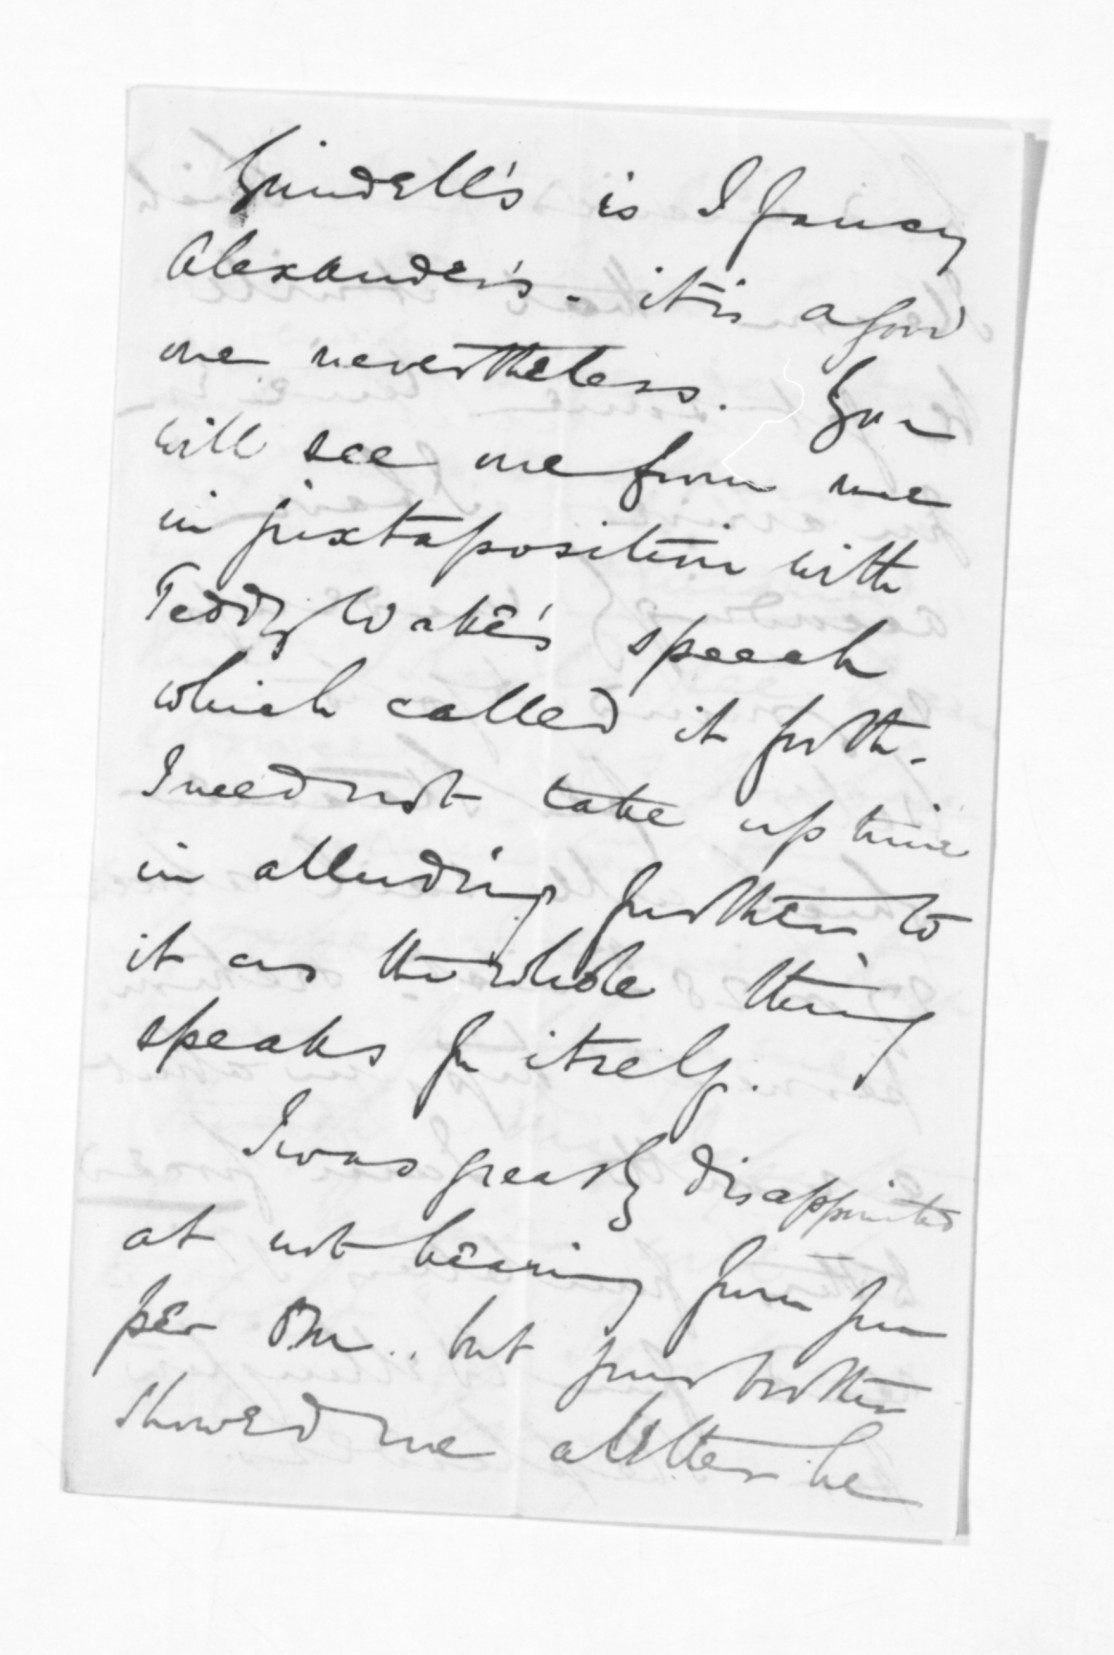 Grindell's is I fancy
Alexander's - it is a good
one nevertheless. You
will see one from me
in juxtaposition with
Teddy Wake's speech
which called it forth.
I need not take up time
in alluding further to
it as the whole thing
speaks for itself.
I was greatly disappointed
at not hearing from you
per .. but your brother
showed me a letter he